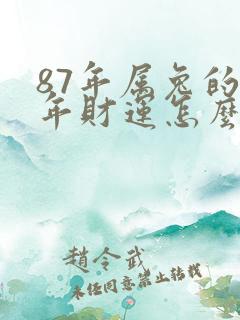 87年属兔的
年财运怎麽
赵令武
未经同意禁止转载